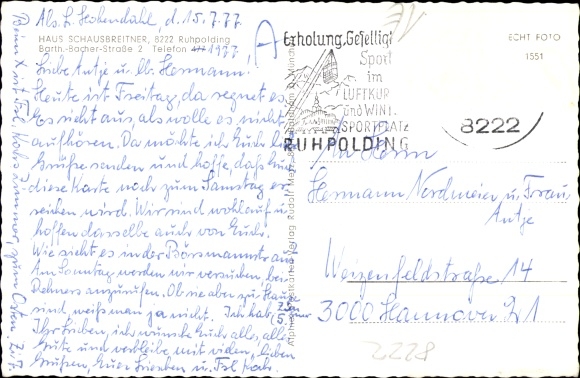 Als. L. Hohendahl, d. 15.7.77.
HAUS SCHAUSBREITNER, 8222 Ruhpolding
Barth.-Bacher-Straße 2 Telefon 1177,
Liebe Antje u. lb. Hermann!
Heute ist Freitag, da regnet es.
Es sieht aus, als wolle es nicht
aufhören. Da möchte ich Euch liebe
Grüße senden und hoffe, daß Euch
diese Karte noch zum Samstag er-
reichen wird. Wir sind wohlauf u.
hoffen dasselbe auch von Euch.
Wie sieht es in der Börsmannstr. aus
Am Sonntag werden wir versuchen, bei
Dehmers anzurufen. Ob sie aber zu Hause
sind, weiß man ja nicht. Ich hab
Ihr Lieben, ich wünsche Euch alles, alles
Gute und verbleibe mit vielen, lieben
Grüßen, Euer
A
Erholung, Geselligk
Sport
im
LUFTKUR
und WINT.
SPORTPLATZ
RUHPOLDING
8222
ECHT FOTO
1551
An Herrn
Hermann Nordmeier u. Frau
Antje
Weizenfeldstraße 14
3000 Hannover 21
2228